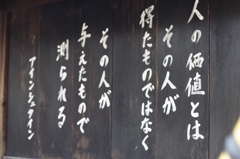 人の価値とは
その人が
得たものではなく
その人が
与えたもので
測られる
アインシュタイン